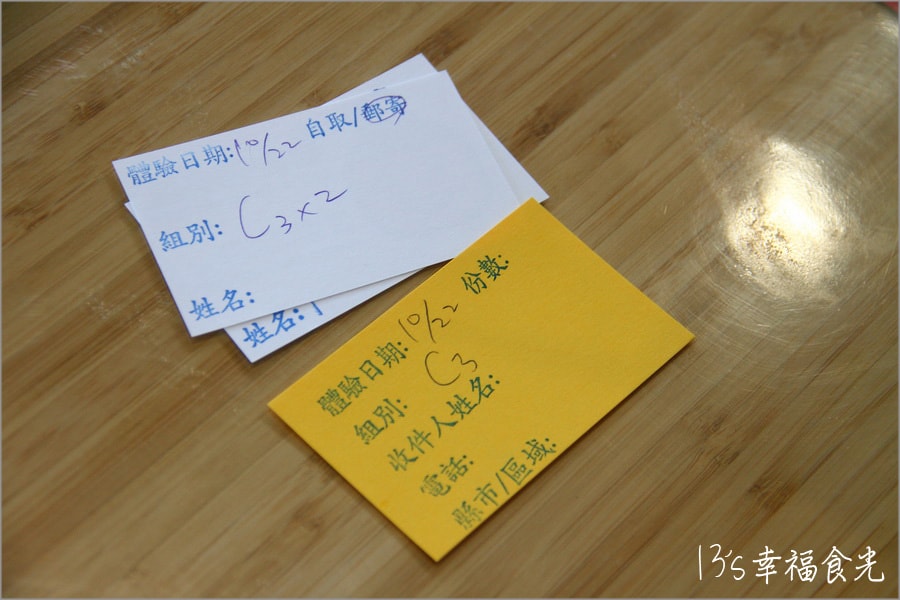 體驗日期:10/22 自取/郵寄
組別: C3x2
姓名:
姓名:
體驗日期:10/22 份數:
組別: C3
收件人姓名:
電話:
縣市/區域:
13's幸福食光